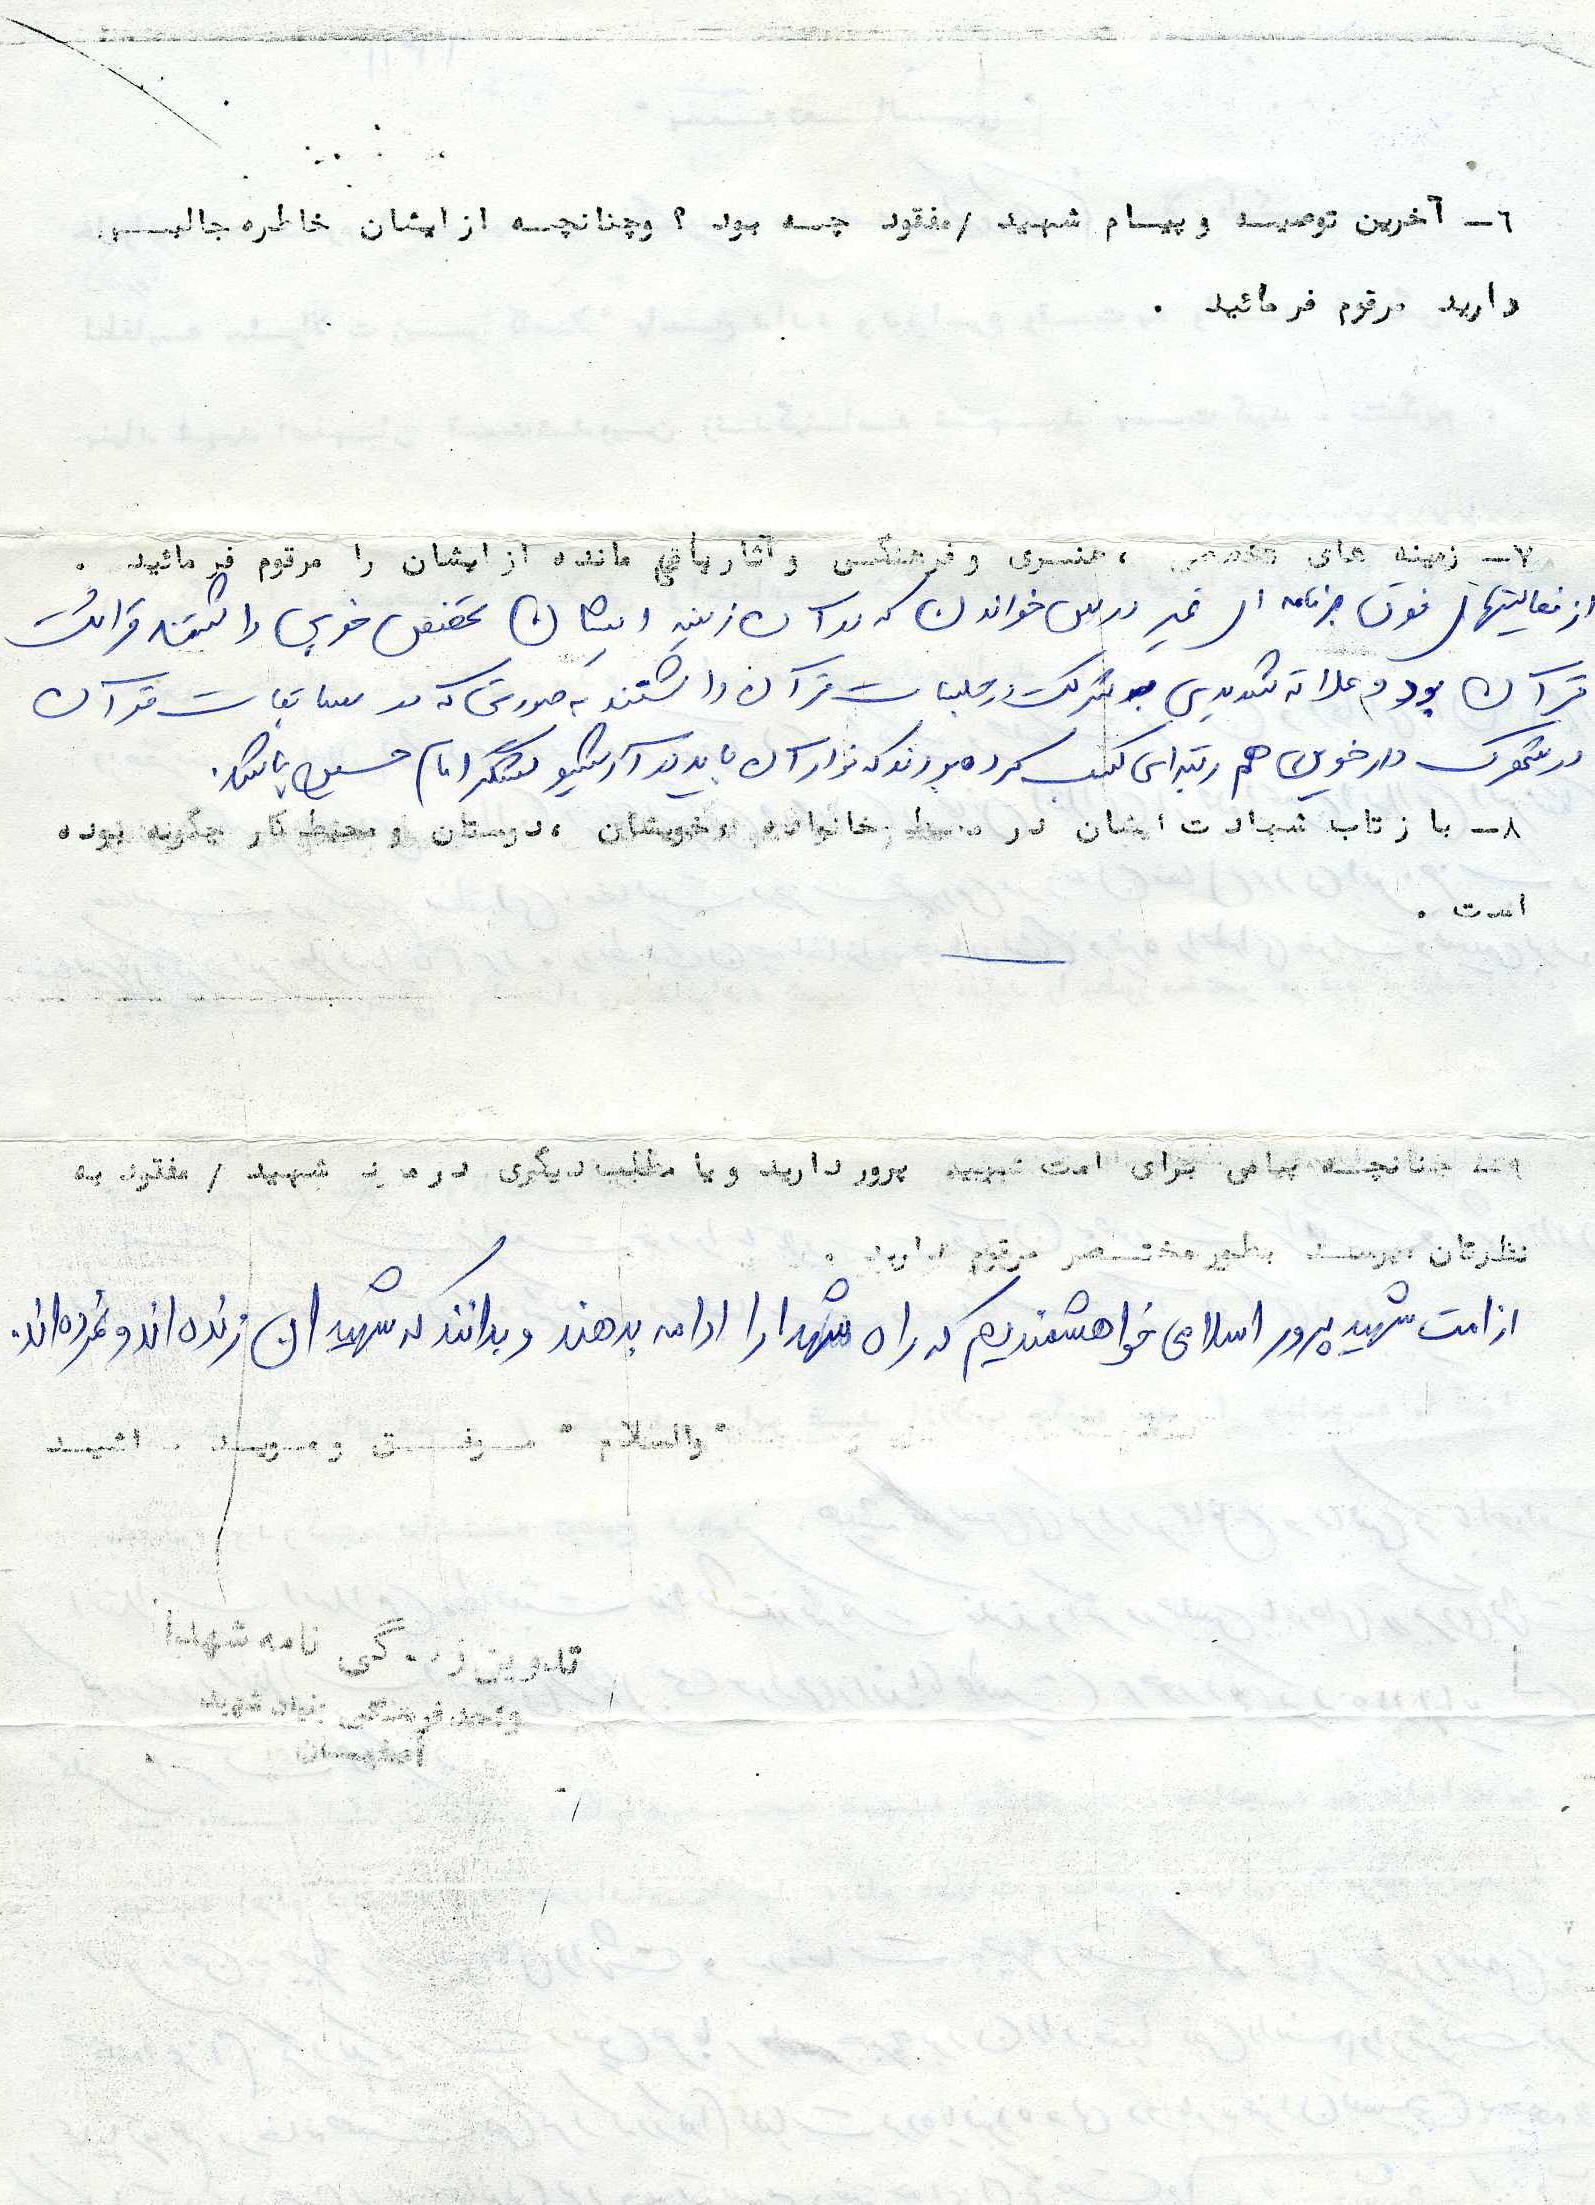 ٦ـ آخرین توصیه و پیام شهید /مفقود چه بود ؟ وچنانچه از ایشان خاطره جالبی
دارید مرقوم فرمائید .
٧ـ زمینه های ، هنری و فرهنگی و آثار باقی مانده از ایشان را مرقوم فرمائید .
از فعالیتهای فوق برنامه ای غیر درس خواندن که در آن زمینه ایشان تخصص خوبی داشتند قرائت
قرآن بود و علاقه شدیدی به شرکت در جلسات قرآن داشتند به صورتی که در مسابقات قرآن
در شهرک دارخوین هم رتبه‌ای کسب کرده بودند که نوار آن باید در آرشیو لشگر امام حسین باشد.
٨ـ بازتاب شهادت ایشان در محیط خانواده وخویشان ، دوستان و محیط کار چگونه بوده
است .
٩ـ چنانچه پیامی برای امت شهید پرور دارید و یا مطلب دیگری در شهید / مفقود به
نظرتان میرسد بطور مختصر مرقوم دارید .
از امت شهید پرور اسلامی خواهشمندیم که راه شهدا را ادامه بدهند و بدانند که شهیدان زنده‌اند و نمرده‌اند.
"والسلام" موفق و موید باشید
تدوین زندگی نامه شهدا
واحد فرهنگی بنیاد شهید
اصفهان